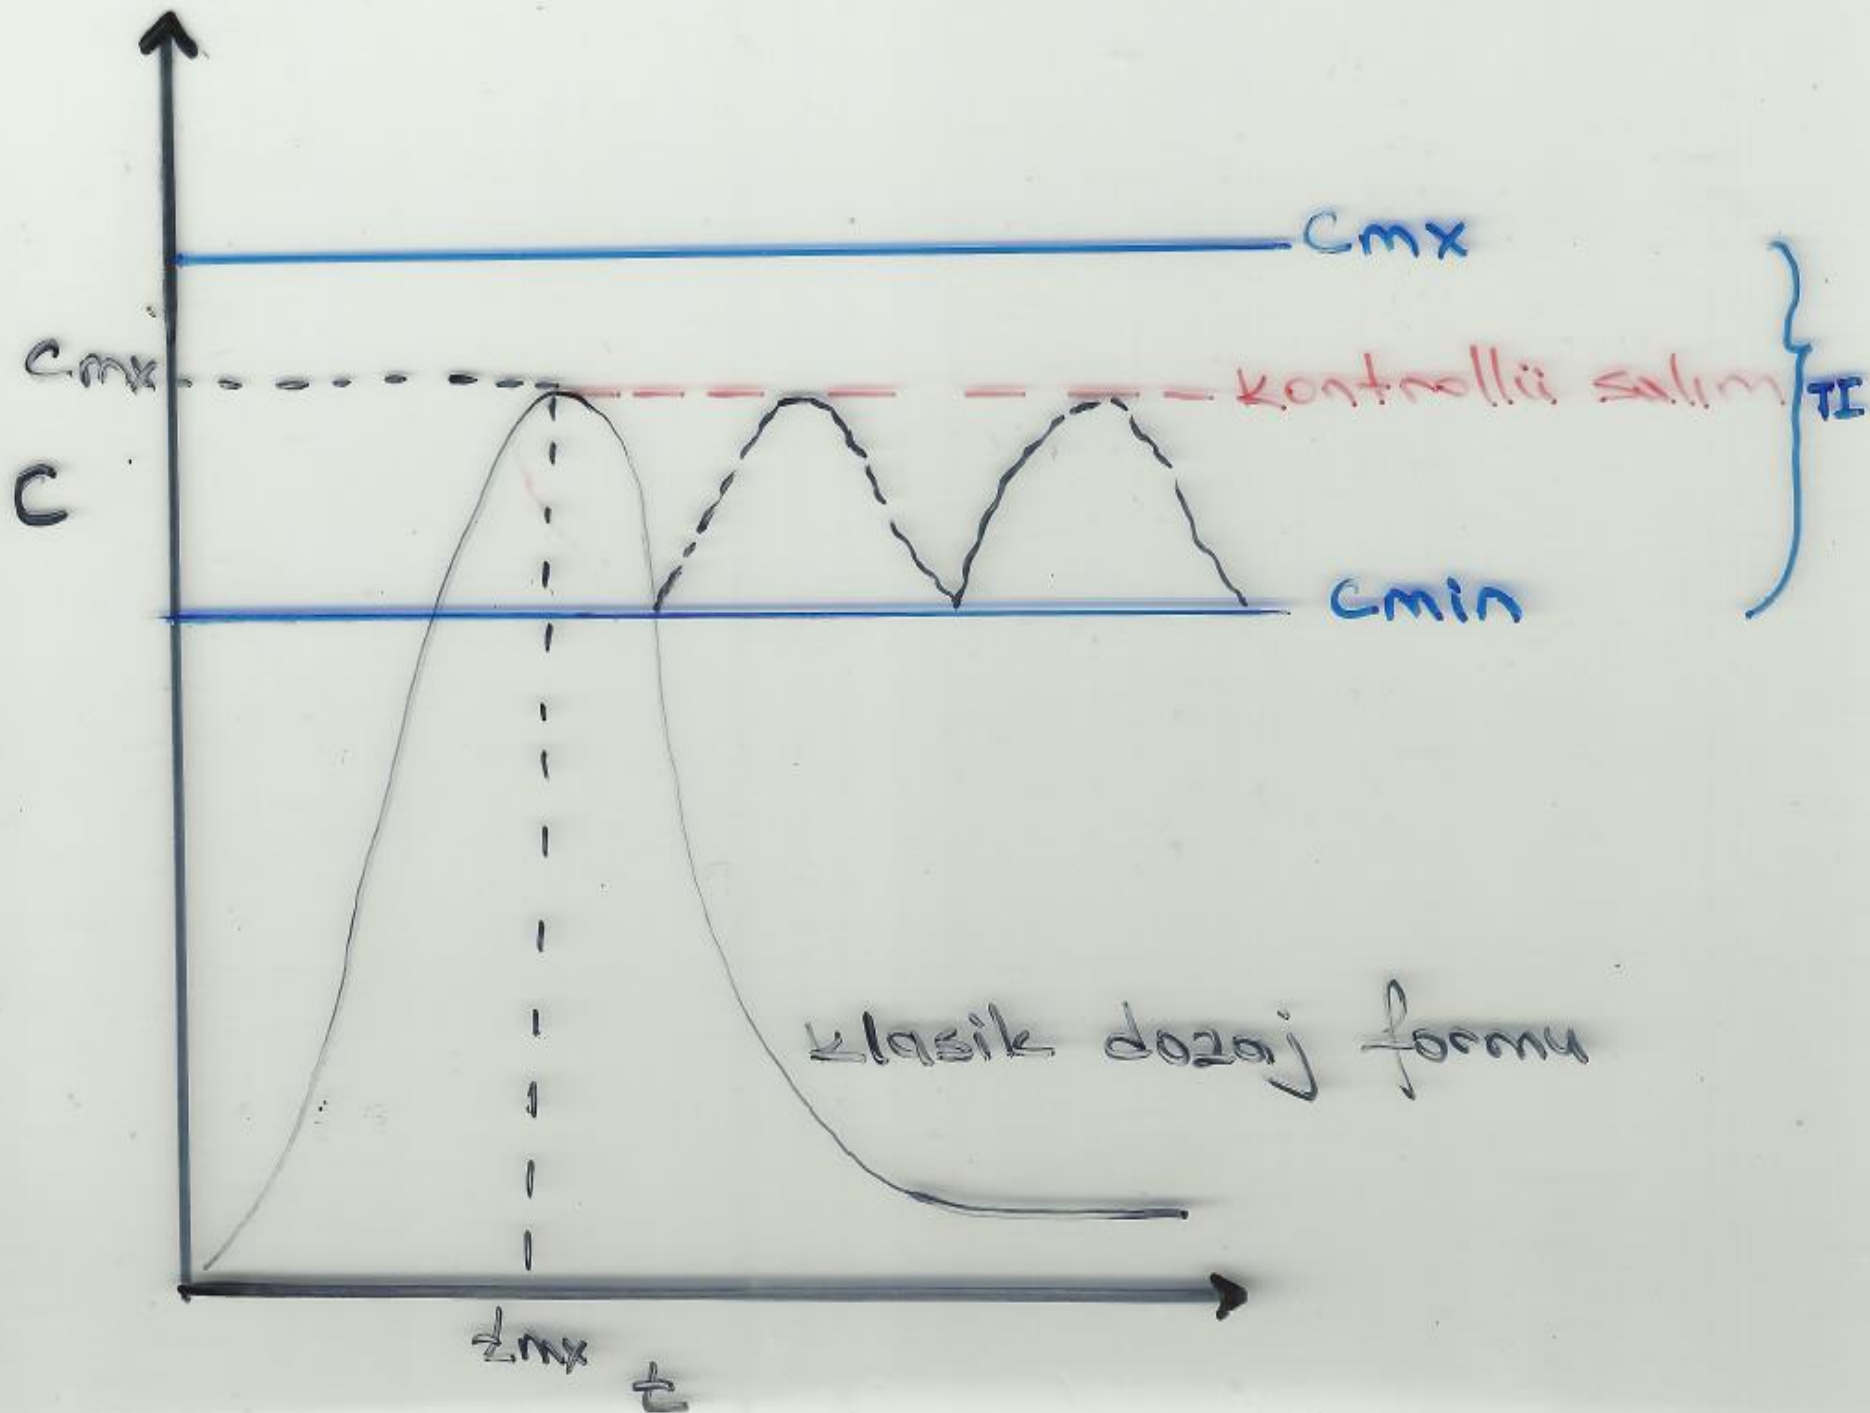 Cmx
Cmx
kontrollü salım
TI
C
Cmin
klasik dozaj formu
tmx
t